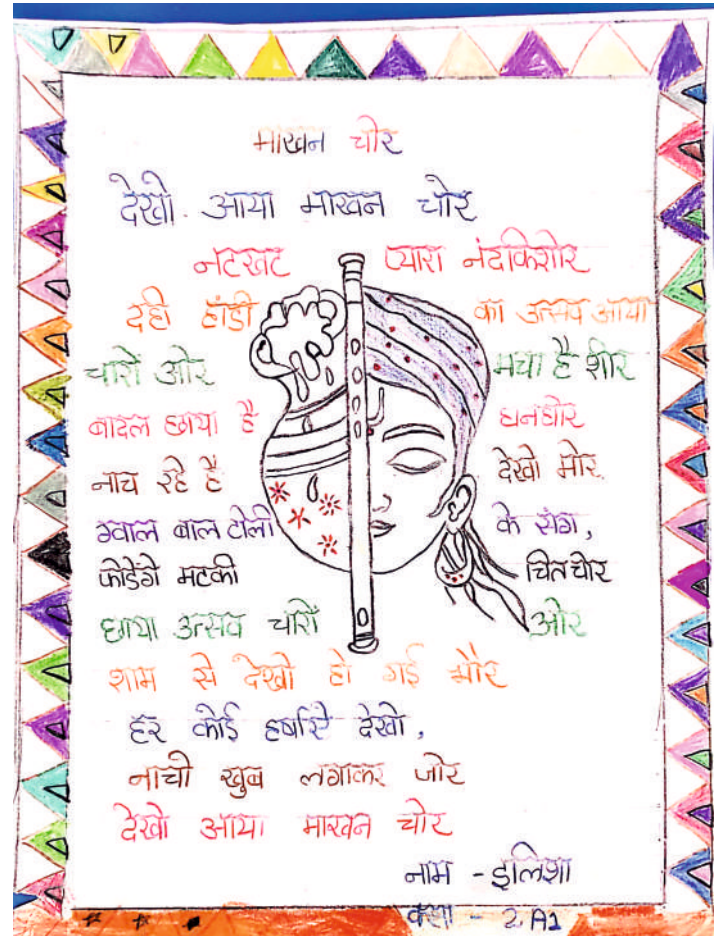 माखन चोर
देखो. आया माखन चोर
नटखट प्यारा नंदकिशोर
दही हांडी का उत्सव आया
चारों ओर मचा है शोर
बादल छाया है घनघोर
नाच रहे है देखो मोर.
ग्वाल बाल टोली के संग,
फोडेंगे मटकी चितचोर
छाया उत्सव चारों ओर
शाम से देखो हो गई भौर
हर कोई हर्षाए देखो,
नाचो खुब लगाकर जोर
देखो आया माखन चोर
नाम - इलिशा
कक्षा - 2 A1